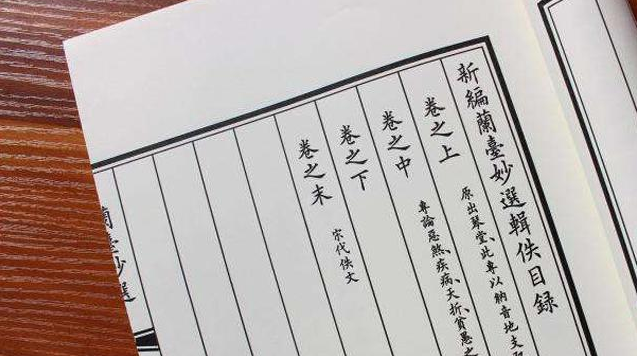 新編蘭臺妙選輯佚目錄
卷之上
原出琴堂、此專以納音地支
卷之中
專論惡煞、疾病、夭折、貧惡之
卷之下
卷之末
宋代佚文
蘭臺妙選